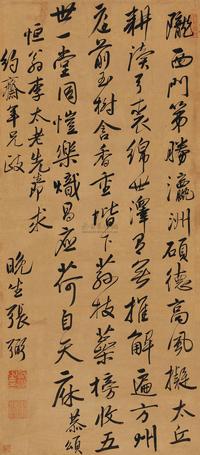 隴西門第勝瀛洲碩德高風擬太丘
耕讀弓裘綿世澤有無推解遍方州
庭前玉樹含香重階下蓀枝蘂榜收五
世一堂同愷樂熾昌應荷自天庥 恭頌
恒翁李太老先
約齋年兄政
晚生張弼